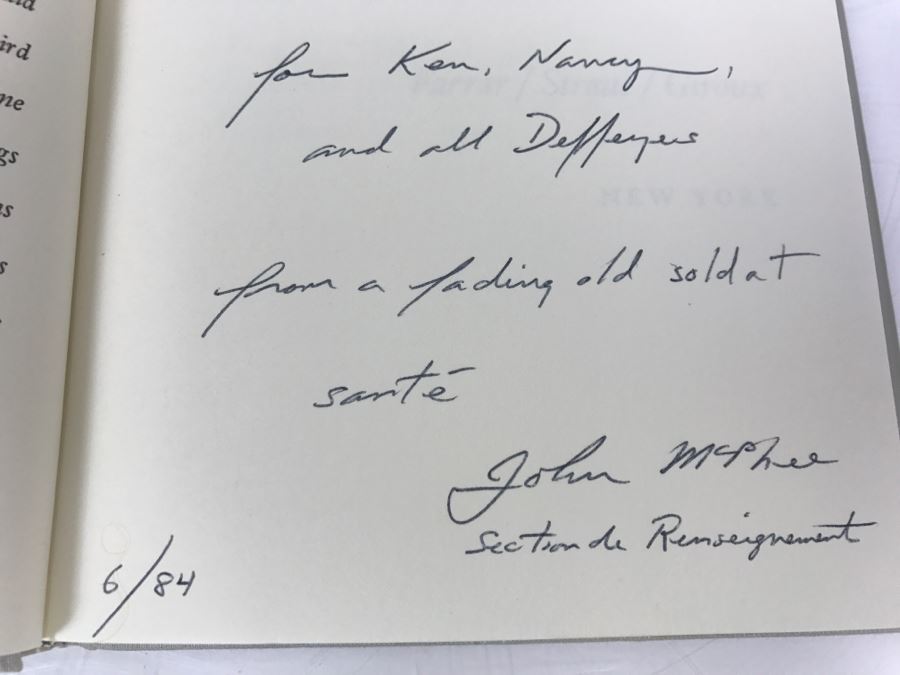 nd
ird
ne
gs
ns
s
for Ken, Nancy,
Farrar / Straus / Giroux
and all Deffeyes
NEW YORK
from a fading old soldat
santé
John McPhee
Section de Renseignement
6/84